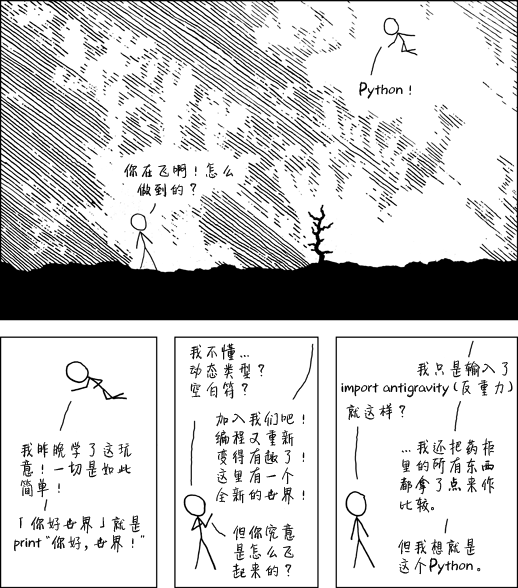 Python！
你在飞啊！怎么
做到的？
我昨晚学了这玩
意！一切是如此
简单！
「你好世界」就是
print "你好，世界！"
我不懂...
动态类型？
空白符？
加入我们吧！
编程又重新
变得有趣了！
这里有一个
全新的世界！
但你究竟
是怎么飞
起来的？
我只是输入了
import antigravity（反重力）
就这样？
...我还把药柜
里的所有东西
都拿了点来作
比较。
但我想就是
这个Python。